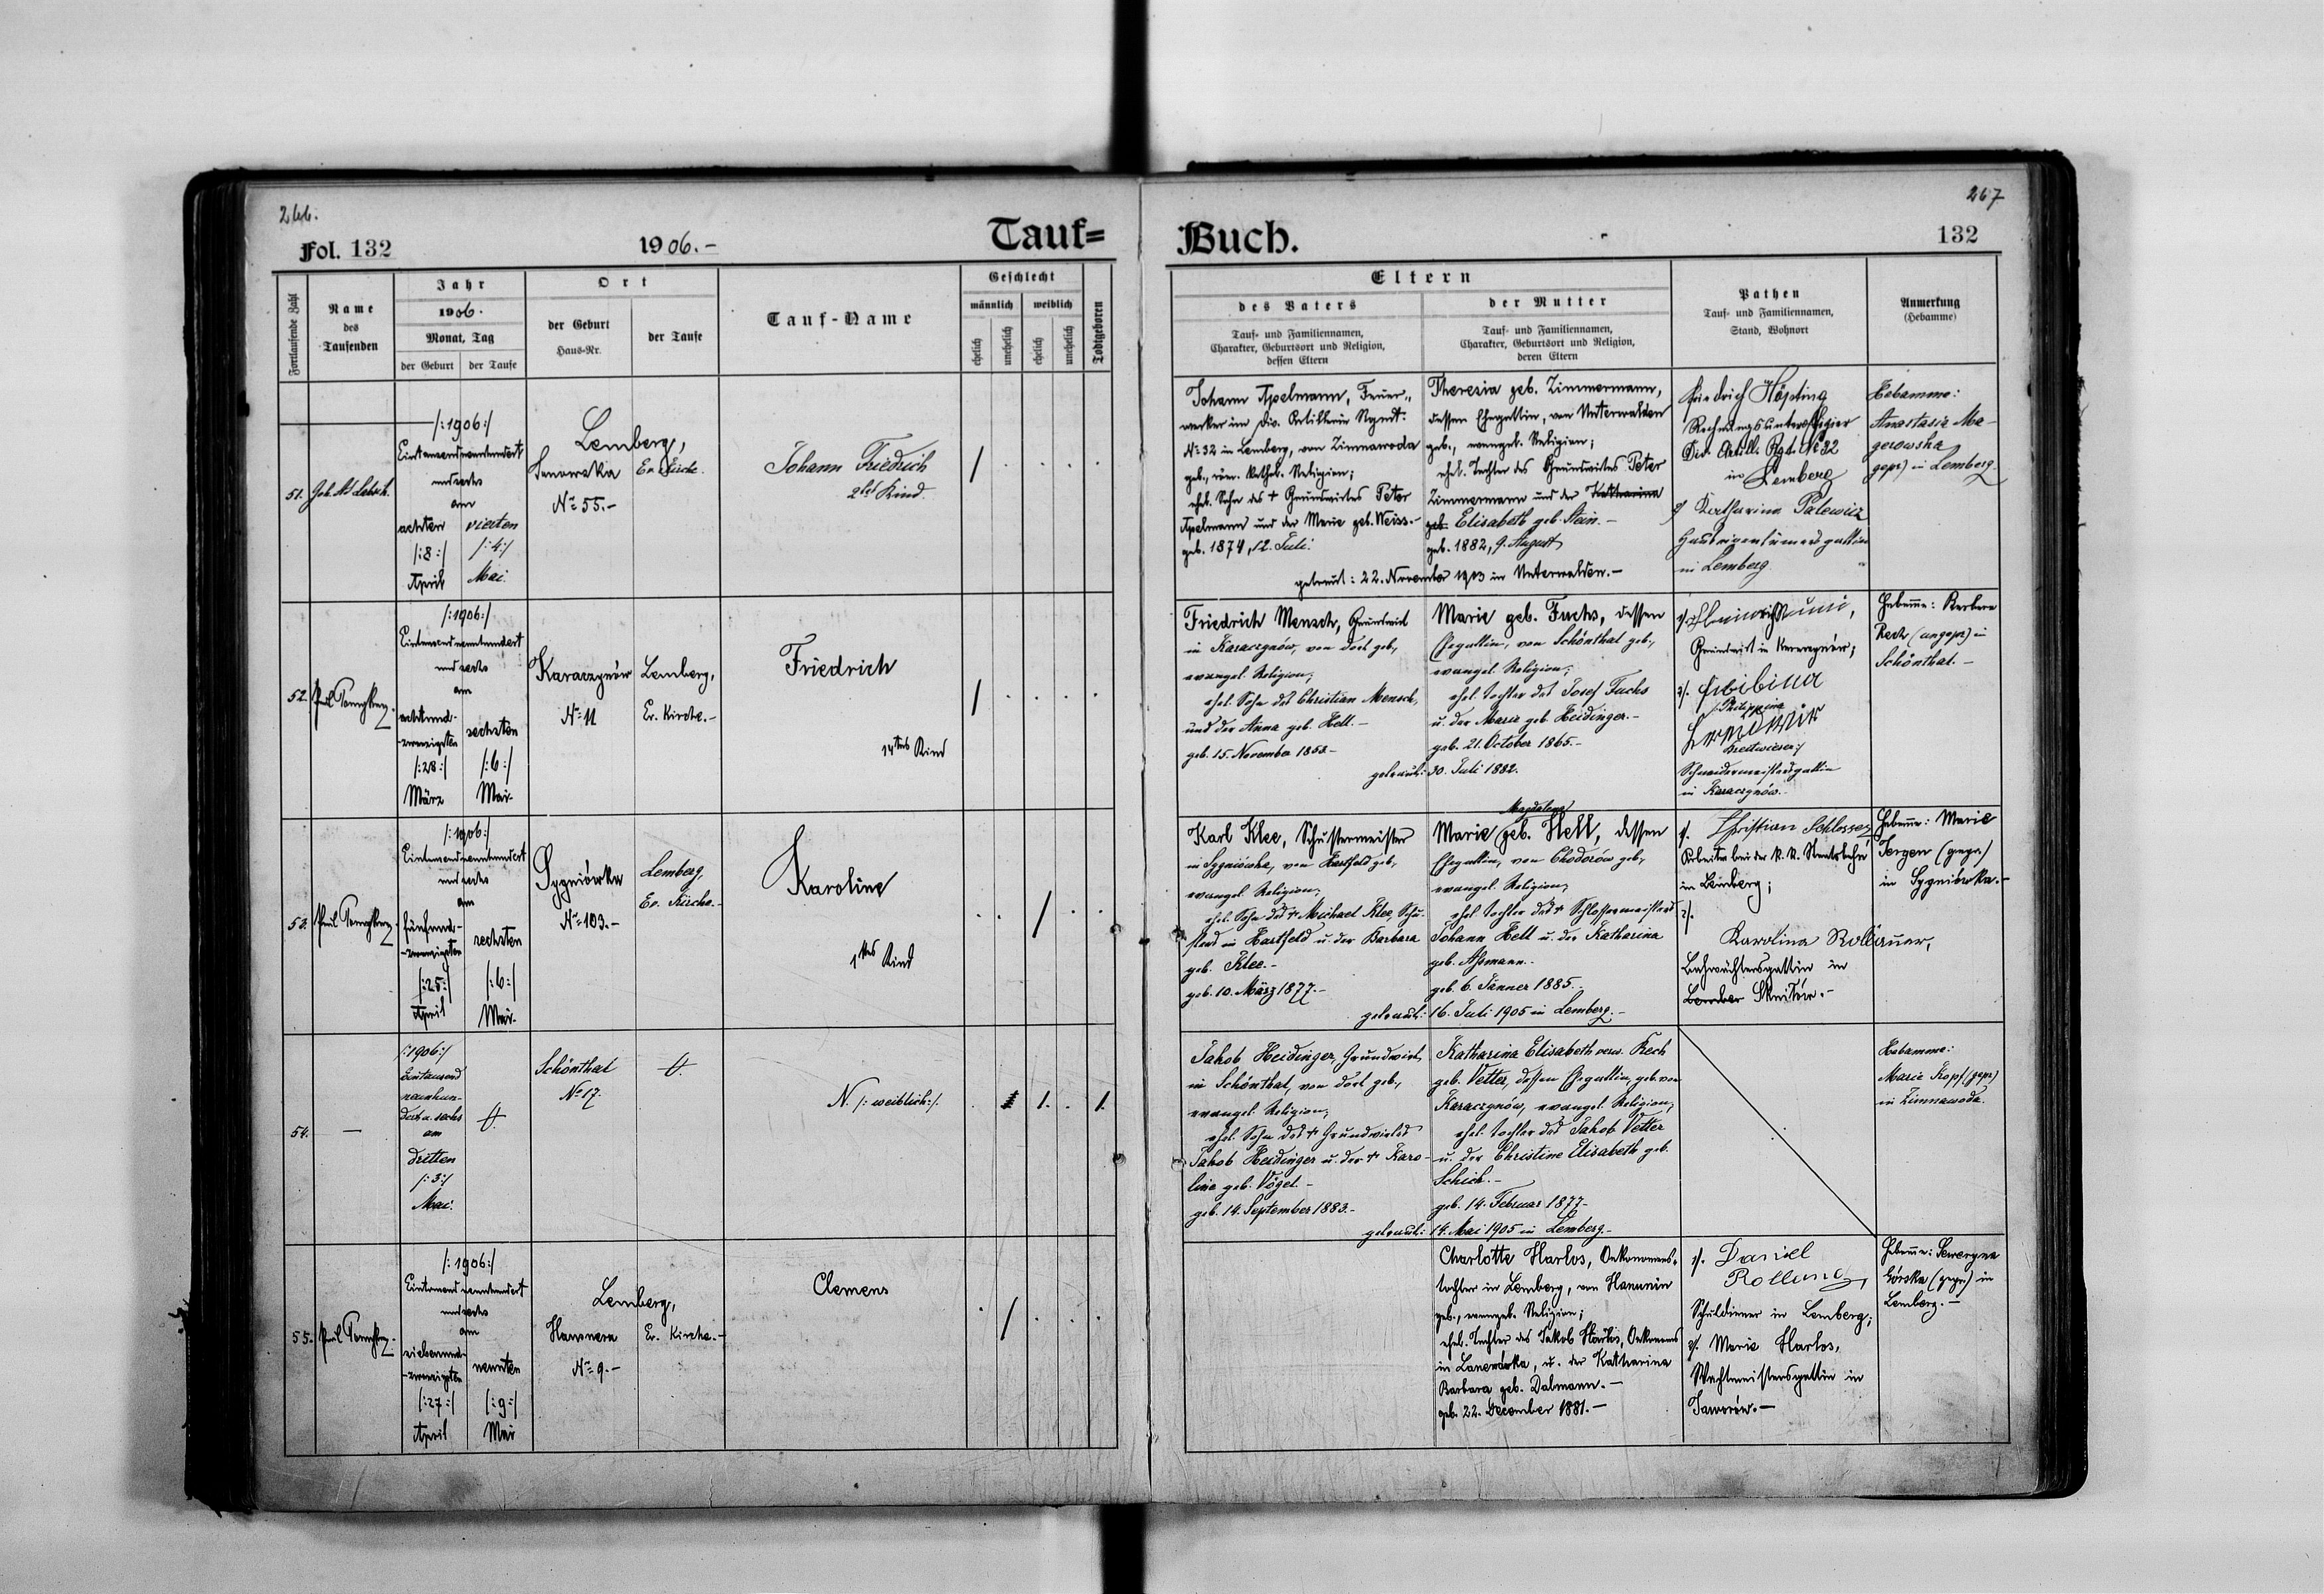 266.
Fol. 132
1906.-
Tauf=
Fortlaufende Zahl
Name
des
Taufenden
Jahr
1906.
Monat, Tag
der Geburt
der Taufe
Ort
der Geburt
Haus-Nr.
der Taufe
Tauf-Name
Geschlecht
männlich
weiblich
ehelich
unehelich
ehelich
unehelich
Todtgeboren
51.
/:1906:/
Eintausendneunhundert
und sechs
am
achten
/:8:/
April
vierten
/:4:/
Mai.
Lemberg,
Janowska
Nº 55.-
Ev. Kirche.
Johann Friedrich
2tes Kind.
/
52.
/:1906:/
Eintausendneunhundert
und sechs
am
achtund-
-zwanzigsten
/:28:/
März
sechsten
/:6:/
Mai-
Karaczynów
Nº 11
Lemberg,
Ev. Kirche.-
Friedrich
14tes Kind
/
53.
/:1906:/
Eintausendneunhundert
und sechs
am
fünfund-
-zwanzigsten
/:25:/
April
sechsten
/:6:/
Mai-
Sygniówka
Nº 103.-
Lemberg,
Ev. Kirche.-
Karoline
1tes Kind
/
54.
—
/:1906:/
Eintausend
neunhun-
dert u. sechs
am
dritten
/:3:/
Mai.
Schönthal
Nº 17.
N. /: weiblich:/.
1.
1.
55.
/:1906:/
Eintausendneunhundert
und sechs
am
siebenund-
-zwanzigsten
/:27:/
April
neunten
/:9:/
Mai
Lemberg,
Hausnera
Nº 9.-
Ev. Kirche.-
Clemens
/
267
Buch.
132
Eltern
des Vaters
Tauf- und Familiennamen,
Charakter, Geburtsort und Religion,
dessen Eltern
der Mutter
Tauf- und Familiennamen,
Charakter, Geburtsort und Religion,
deren Eltern
Pathen
Tauf- und Familiennamen,
Stand, Wohnort
Anmerkung
(Hebamme)
Johann Apelmann, Feuer-
werker im Div. Artillerie Rgmt.
Nº 32 in Lemberg, von Zimnawoda
geb., röm. kathol. Religion;
ehel. Sohn des + Grundwirtes Peter
Apelmann und der Marie geb. Weiss.-
geb. 1874, 12. Juli.
Theresia geb. Zimmermann,
dessen Ehegattin, von Unterwalden
geb., evangel. Religion;
ehel. Tochter des Grundwirtes Peter
Zimmermann und der Katharina
geb. Elisabeth geb. Stein.-
geb. 1882, 9. August
getraut: 22. November 1903 in Unterwalden.-
Friedrich Höpting
Rechnungsunteroffizier
Div. Artill. Rgt. Nº 32
in Lemberg
2/ Katharina Palewicz
Hauseigentümersgattin
in Lemberg
Hebamme:
Anastasia Ma-
gerowska
(gepr) in Lemberg.
Friedrich Mensch, Grundwirt
in Karaczynów, von dort geb.,
evangel. Religion;
ehel. Sohn des Christian Mensch,
und der Anna geb. Hell.-
geb. 15. November 1858-
Marie geb. Fuchs, dessen
Ehegattin, von Schönthal geb.,
evangel. Religion;
ehel. Tochter des Josef Fuchs
u. der Marie geb. Heidinger.-
geb. 21. October 1865.-
getraut: 30. Juli 1882.
Grundwirt in Karaczynów;
2/.
/:Philippina
Schneidermeistersgattin
in Karaczynów.-
Hebamme: Barbara
Rech (ungepr) in
Schönthal.-
Karl Klee, Schustermeister
in Sygniówka, von Hartfeld geb.,
evangel. Religion;
ehel. Sohn des + Michael Klee, Schu-
sters in Hartfeld u. der Barbara
geb. Klee.-
geb. 10. März 1877.-
Magdalena
Marie geb. Hell, dessen
Ehegattin, von Chodorów geb.,
evangel. Religion;
ehel. Tochter des + Schlossermeisters
Johann Hell u. der Katharina
geb. Assmann.-
geb. 6. Jänner 1885.-
getraut: 16. Juli 1905 in Lemberg.-
1/. Christian Schlosser,
Arbeiter bei der k. k. Staatsbahn
in Lemberg;
2/.
Karolina Rollauer,
Bahnwächtersgattin in
Lemberg Skniłów.-
Hebamme: Marie
Jergen (gepr)
in Sygniówka.-
Jakob Heidinger, Grundwirt,
in Schönthal, von dort geb.,
evangel. Religion;
ehel. Sohn des + Grundwirtes
Jakob Heidinger u. der + Karo-
line geb. Vögel.-
geb. 14. September 1883.-
Katharina Elisabeth verw. Rech
geb. Vetter, dessen Ehegattin, geb. von
Karaczynów, evangel. Religion;
ehel. Tochter des Jakob Vetter
u. der Christine Elisabeth geb.
Schick.-
geb. 14. Februar 1877-
getraut: 14. Mai 1905 in Lemberg.-
Hebamme:
Marie Kopf (gepr)
in Zimnawoda.
Charlotte Harlos, Oekonomens-
tochter in Lemberg, von Hanunin
geb., evangel. Religion;
ehel. Tochter des Jakob Harlos, Oekonoms
in Lanerówka, u. der Katharina
Barbara geb. Dalmann.-
geb. 22. December 1881.-
1/. Daniel
Rollung,
Schuldiener in Lemberg;
2/. Marie Harlos,
Wachtmeistersgattin in
Jaworów.-
Hebamme: Seweryna
Górska (gepr) in
Lemberg.-